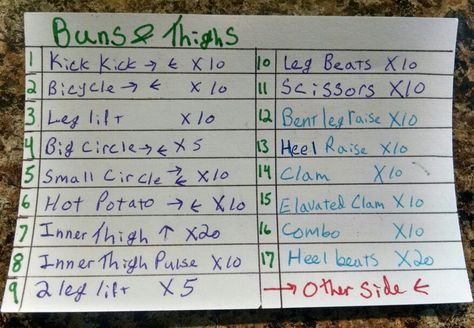 Buns & Thighs
1 Kick Kick → ← X10
2 Bicycle → ← X10
3 Leg lift X10
4 Big Circle → ← X5
5 Small Circle → ← X10
6 Hot Potato → ← X10
7 Inner Thigh ↑ X20
8 Inner Thigh Pulse X10
9 2 leg lift X5
10 Leg Beats X10
11 Scissors X10
12 Bent leg raise X10
13 Heel Raise X10
14 Clam X10
15 Elavated Clam X10
16 Combo X10
17 Heel beats X20
→ Other Side ←